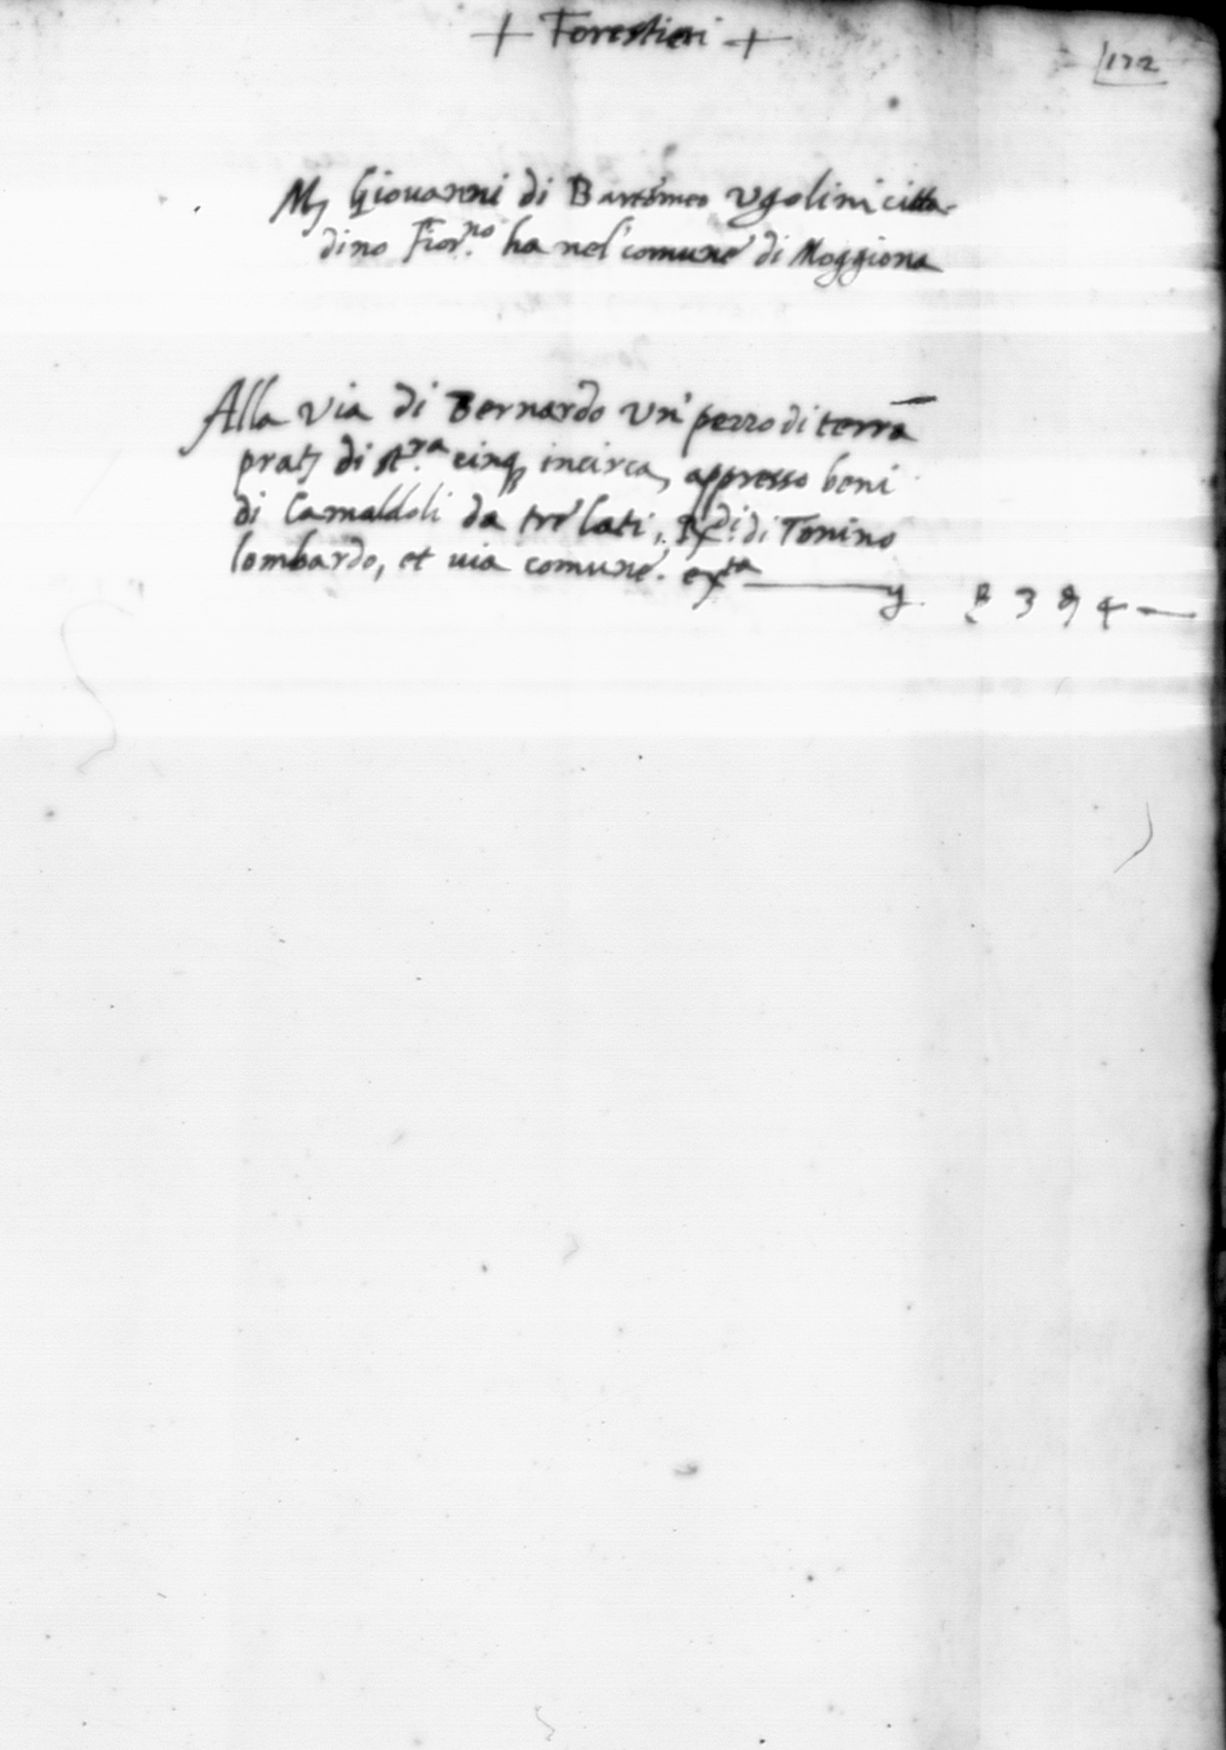 + Forestieri +
122
M Giouanni di Bartomeo Vgolini citta-
dino Fior.no ha nel comune di Moggiona
Alla via di Bernardo un pezzo di terra
prat di st.ra cinq incirca, appresso beni
di Camaldoli da tre lati, di Tonino
lombardo, et uia comune. ex.ta